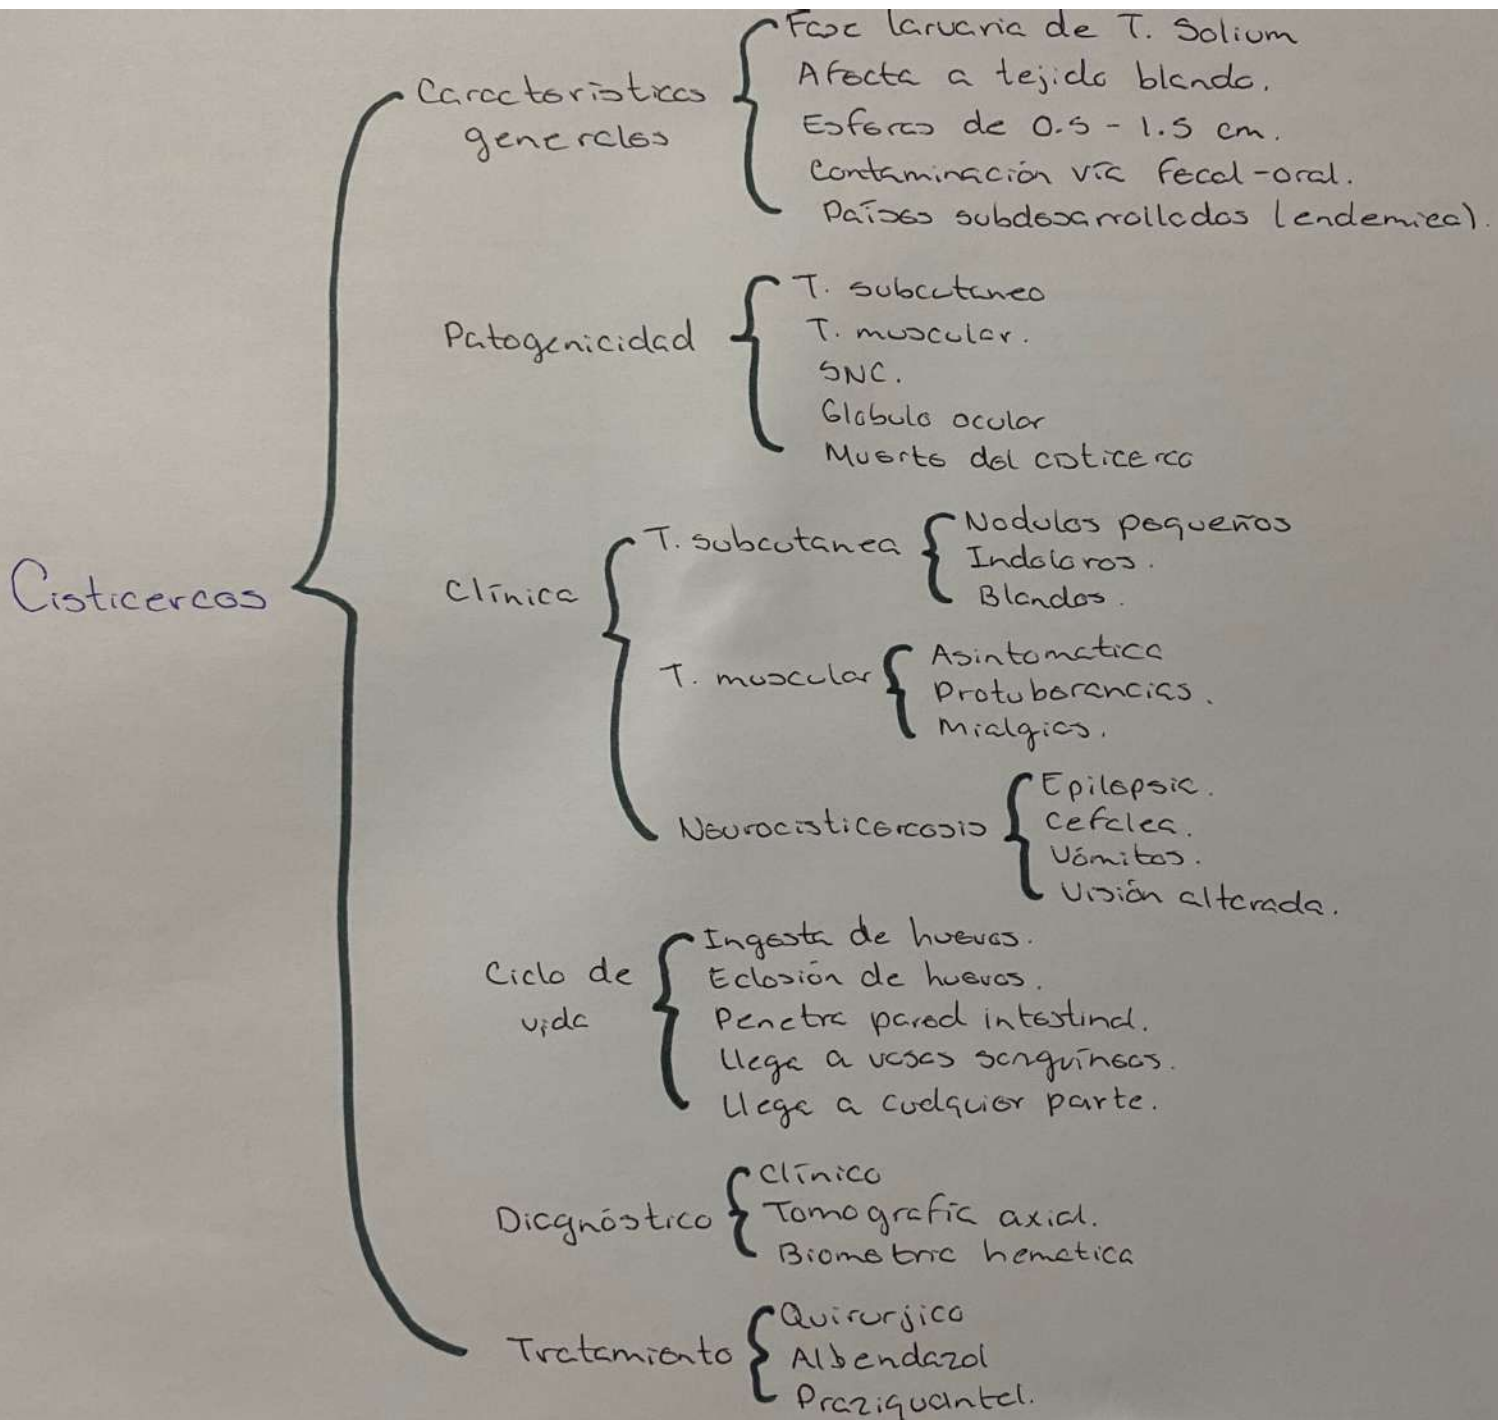 Fase larvaria de T. Solium
Características
generales
Afecta a tejido blando.
Esferas de 0.5 - 1.5 cm.
Contaminación vía fecal-oral.
Países subdesarrollados (endemica).
Patogenicidad
T. subcutaneo
T. muscular.
SNC.
Globulo ocular
Muerte del cisticerco
Cisticercos
Clínica
T. subcutanea
Nodulos pequeños
Indoloros.
Blandos.
T. muscular
Asintomatica
Protuberancias.
Mialgias.
Neurocisticercosis
Epilepsia.
Cefalea.
Vómitos.
Visión alterada.
Ciclo de
vida
Ingesta de huevos.
Eclosión de huevos.
Penetra pared intestinal.
Llega a vasos sanguíneos.
Llega a cualquier parte.
Diagnóstico
Clínico
Tomografía axial.
Biometria hematica
Tratamiento
Quirurjico
Albendazol
Praziquantel.